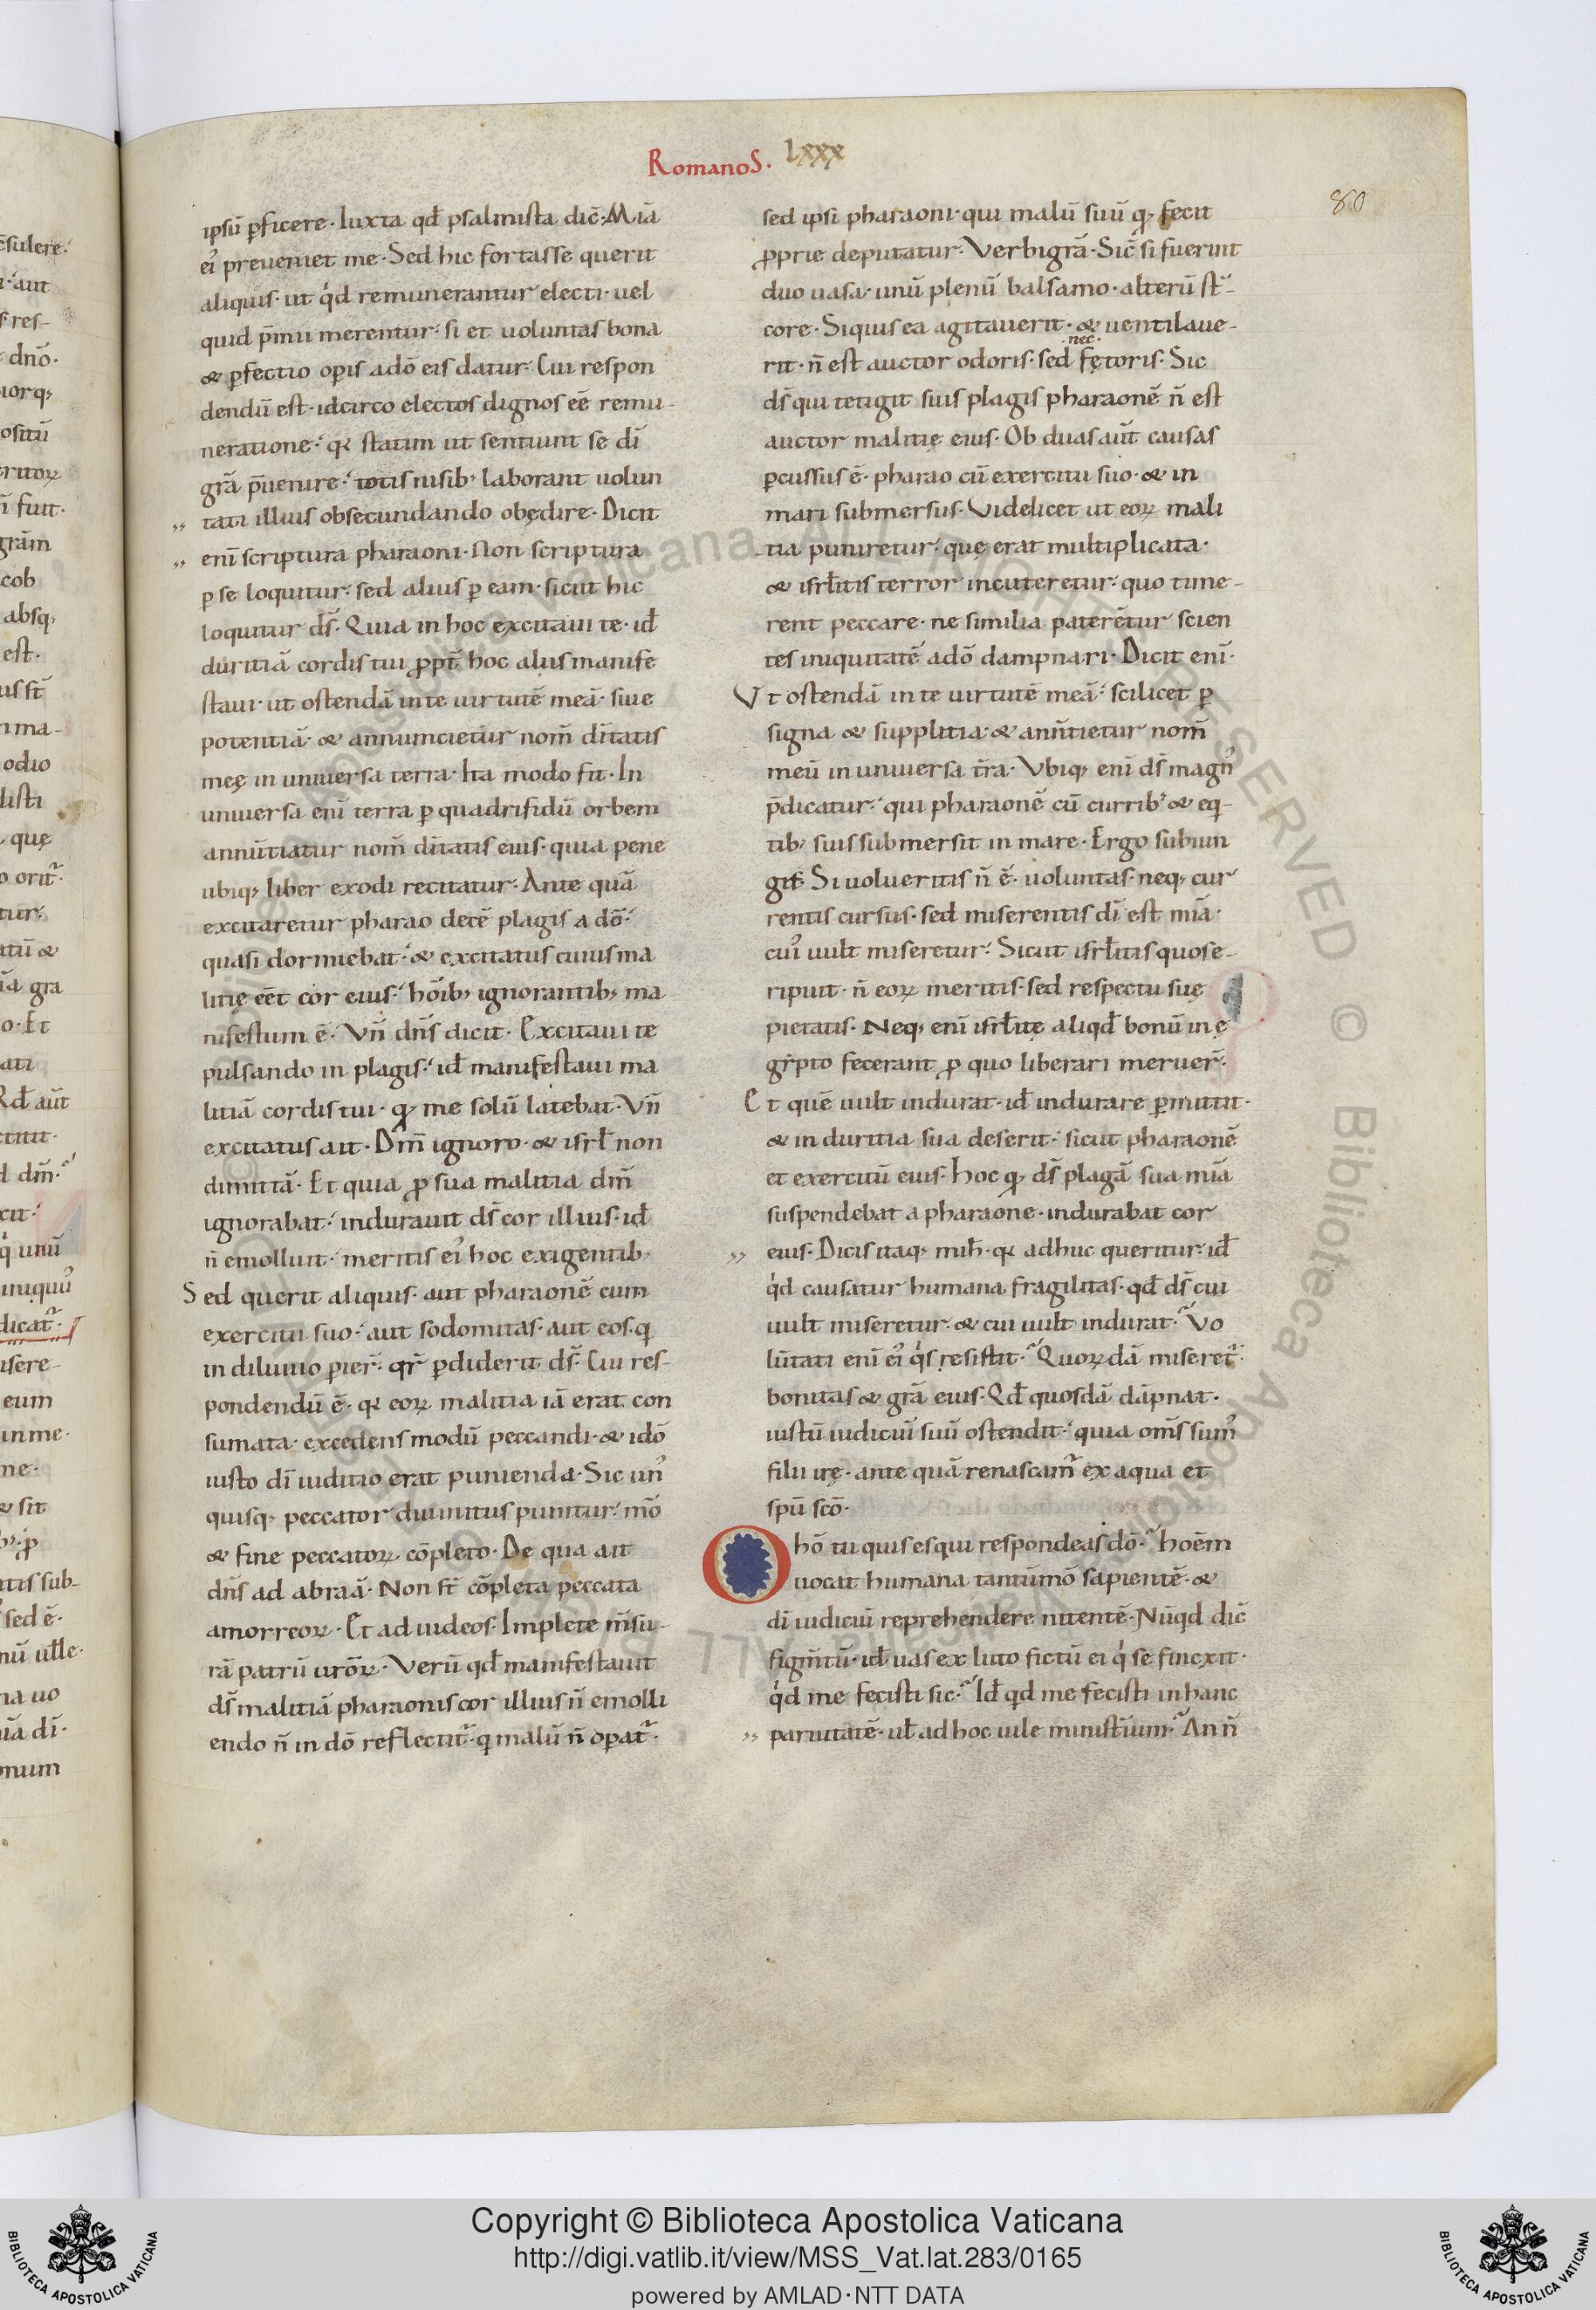 RomanoS. Lxxx
80
ipsū ꝑficere. Iuxta qđ psalmista dic̄. Mia
ei᾽ preueniet me. Sed hic fortasse querit
aliquis. ut qͥd remunerantur electi. uel
quid p̄mii merentur. si et uoluntas bona
& ꝑfectio oꝑis a dō eis datur. Cui respon
dendū est. idcirco electos dignos eē remu-
neratione. qꝛ statim ut sentiunt se dī
grā p̄uenire. totis nisib; laborant uolun
tati illius obsecundando obędire. Dicit
enī scriptura pharaoni. Non scriptura
ꝑ se loquitur. sed alius ꝑ eam. sicut hic
loquitur ds̄. Quia in hoc excitaui te. id̄
duritiā cordis tui ꝓpt̄ hoc aliis manife
staui. ut ostendā in te uirtutē meā. siue
potentiā. & annuncietur nom̄ dītatis
meę in uniuersa terra. Ita modo fit. In
uniuersa enī terra ꝑ quadrifidū orbem
annūtiatur nom̄ dītatis eius. quia pene
ubiq; liber exodi recitatur. Ante quā
excitaretur pharao decē plagis a dō.
quasi dormiebat. & excitatus cuius ma
litię eēt cor eius. hoīb; ignorantib; ma
nifestum ē. Vn̄ dn̄s dicit. Excitaui te
pulsando in plagis. id̄ manifestaui ma
litiā cordis tui. qͥ me solū latebat. Vn̄
excitatus ait. Dm̄ ignoro. & isrl̄ non
dimittā. Et quia ꝓ sua malitia dm̄
ignorabat. indurauit ds̄ cor illius. id̄
n̄ emolliuit. meritis ei᾽ hoc exigentib;
Sed querit aliquis. aut pharaonē cum
exercitu suo. aut sodomitas. aut eos. q
in diluuio ꝑier̄. qr̄ ꝑdiderit ds̄. Cui res-
pondendū ē. qꝛ eoꝝ malitia iā erat con
sumata. excedens modū peccandi. & idō
iusto dī iuditio erat punienda. Sic un᾽
quisq; peccator diuinitus punitur. mō
& fine peccatoꝝ cōpleto. De qua ait
dn̄s ad abraā. Non st̄ cōpleta peccata
amorreoꝝ. Et ad iudeos. Implete m̄su-
rā patrū ur̄oꝝ. Verū qđ manifestauit
ds̄ malitiā pharaonis cor illius n̄ emolli
endo n̄ in dō reflectit᷑. q malū n̄ oꝑat᷑.
sed ipsi pharaoni. qui malū suū qͥ fecit
ꝓprie deputatur. Verbigrā. Sic̄ si fuerint
duo uasa. unū plenū balsamo. alterū st̄-
core. Siquis ea agitauerit. & uentilaue-
rit. n̄ est auctor odoris. sed nec fętoris. Sic
ds̄ qui tetigit suis plagis pharaonē n̄ est
auctor malitię eius. Ob duas aūt causas
ꝑcussus ē. pharao cū exercitu suo. & in
mari submersus. Videlicet ut eoꝝ mali
tia puniretur. quę erat multiplicata.
& isrl̄itis terror incuteretur. quo time-
rent peccare. ne similia paterētur scien
tes iniquitatē a dō dampnari. Dicit enī.
Vt ostendā in te uirtutē meā. scilicet ꝑ
signa & supplitia. & annūtietur nom̄
meū in uniuersa t̄ra. Vbiq; enī ds̄ magn᾽
p̄dicatur. qui pharaonē cū currib; & eq-
tib; suis submersit in mare. Ergo subiun
git. Si uolueritis n̄ ē. uoluntas. neq; cur
rentis cursus. sed miserentis dī est mīa.
cui᾽ uult miseretur. Sicut isrl̄itis quos e-
ripuit. n̄ eoꝝ meritis. sed respectu suę
pietatis. Neq; enī isrl̄itę aliqđ bonū in ę
gypto fecerant ꝓ quo liberari meruer̄.
Et quē uult indurat. id̄ indurare ꝑmittit.
& in duritia sua deserit. sicut pharaonē
et exercitū eius. Hoc qͥ ds̄ plagā sua mīa
suspendebat a pharaone. indurabat cor
eius. Dicis itaq; mih̄. qꝛ adhuc queritur. id̄
qͥd causatur humana fragilitas. qđ ds̄ cui
uult miseretur. & cui uult indurat. Vo
lūtati enī ei᾽ qͥs resistit. Quoꝝdā miseret᷑.
bonitas & grā eius. Qđ quosdā dāpnat.
iustū iudiciū suū ostendit. quia om̄s sum᾽
filii irę. ante quā renascam᷑ ex aqua et
spū scō.
O hō tu quis es qui respondeas dō. hoēm
uocat humana tantūmō sapientē. &
dī iudiciū reprehendere nitentē. Nūqd dic̄
figm̄tū. id̄ uas ex luto fictū ei qͥ se fincxit.
qͥd me fecisti sic. Id̄ qd me fecisti in hanc
paruitatē. ul̄ ad hoc uile minist̄ium. An n̄
Copyright © Biblioteca Apostolica Vaticana
http://digi.vatlib.it/view/MSS_Vat.lat.283/0165
powered by AMLAD·NTT DATA
BIBLIOTECA APOSTOLICA VATICANA
BIBLIOTECA APOSTOLICA VATICANA